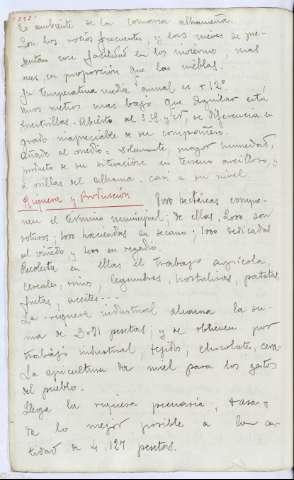 ambiente de la comarca alhameña.
Son los rocíos frecuentes, y las nieves se pre-
sentan con facilidad en los inviernos, mas
no en proporción que las nieblas.
Su temperatura media anual es + 12º
unos metros mas bajo que Aguilar está
Inestrillas. Abierto al S. se diferencia en
grado inapreciable a su compañera.
Añado al medio: solamente, mayor humedad,
producto de su situación en terreno arcilloso, y
a orillas del Alhama, casi a su nivel
Riqueza y Producción 8000 hectáreas compo-
nen el término municipal; de ellas, 2000 son
1000 dedicadas
al viñedo y 400 en regadío.
Recolecta en ellas el trabajo agrícola,
cereales, vino, legumbres, hortalizas, patatas
frutas, aceites...
La riqueza industrial alcanza la su-
ma de pesetas, y se obtienen por
trabajo industrial, tejidos, chocolates, cera.
La apicultura da miel para los gastos
del pueblo.
Llega la riqueza pecuaria, tasa-
da lo mejor posible a la can-
tidad de 4.127 pesetas.